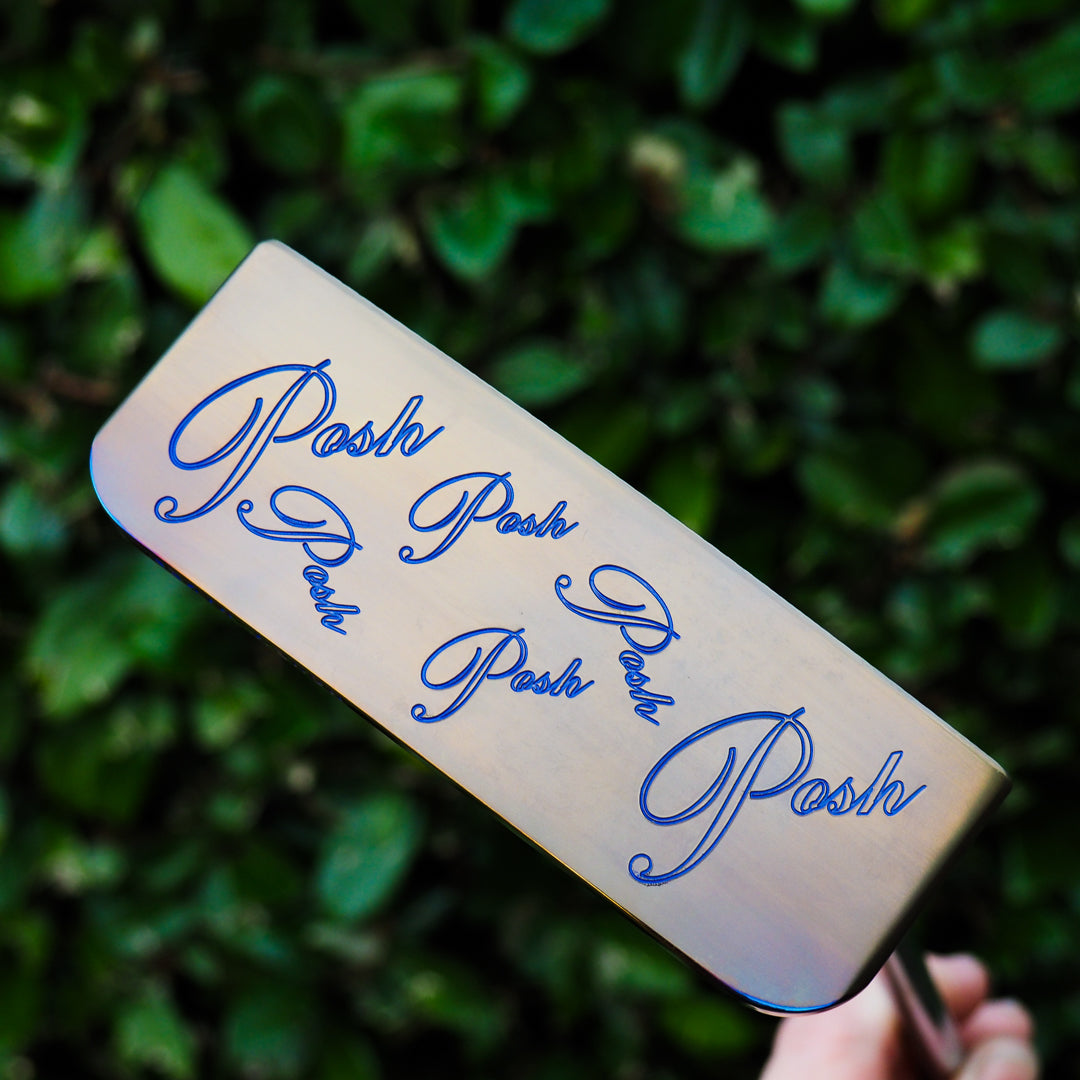 Posh
Posh
Posh
Posh
Posh
Posh